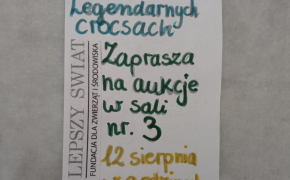 Legendarnych
crocsach
Zaprasza
na aukcje
w sali
nr. 3
12 sierpnia
LEPSZY ŚWIAT
FUNDACJA DLA ZWIERZĄT I ŚRODOWISKA